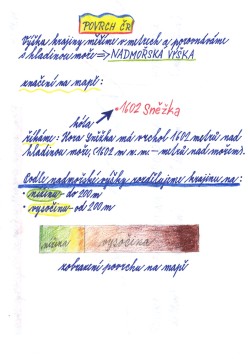 POVRCH ČR
Výška krajiny měříme v metrech a porovnáváme
s hladinou moře => NADMOŘSKÁ VÝŠKA
značení na mapě:
• 1602 Sněžka
hůla
říkáme: Hora Sněžka má vrchol 1602 metrů nad
hladinou moře, (1602 m n. m. - metrů nad mořem).
Podle nadmořské výšky rozdělujeme krajinu na:
• nížinu - do 200 m
• vysočinu - od 200 m
nížina vysočina
zobrazení povrchu na mapě